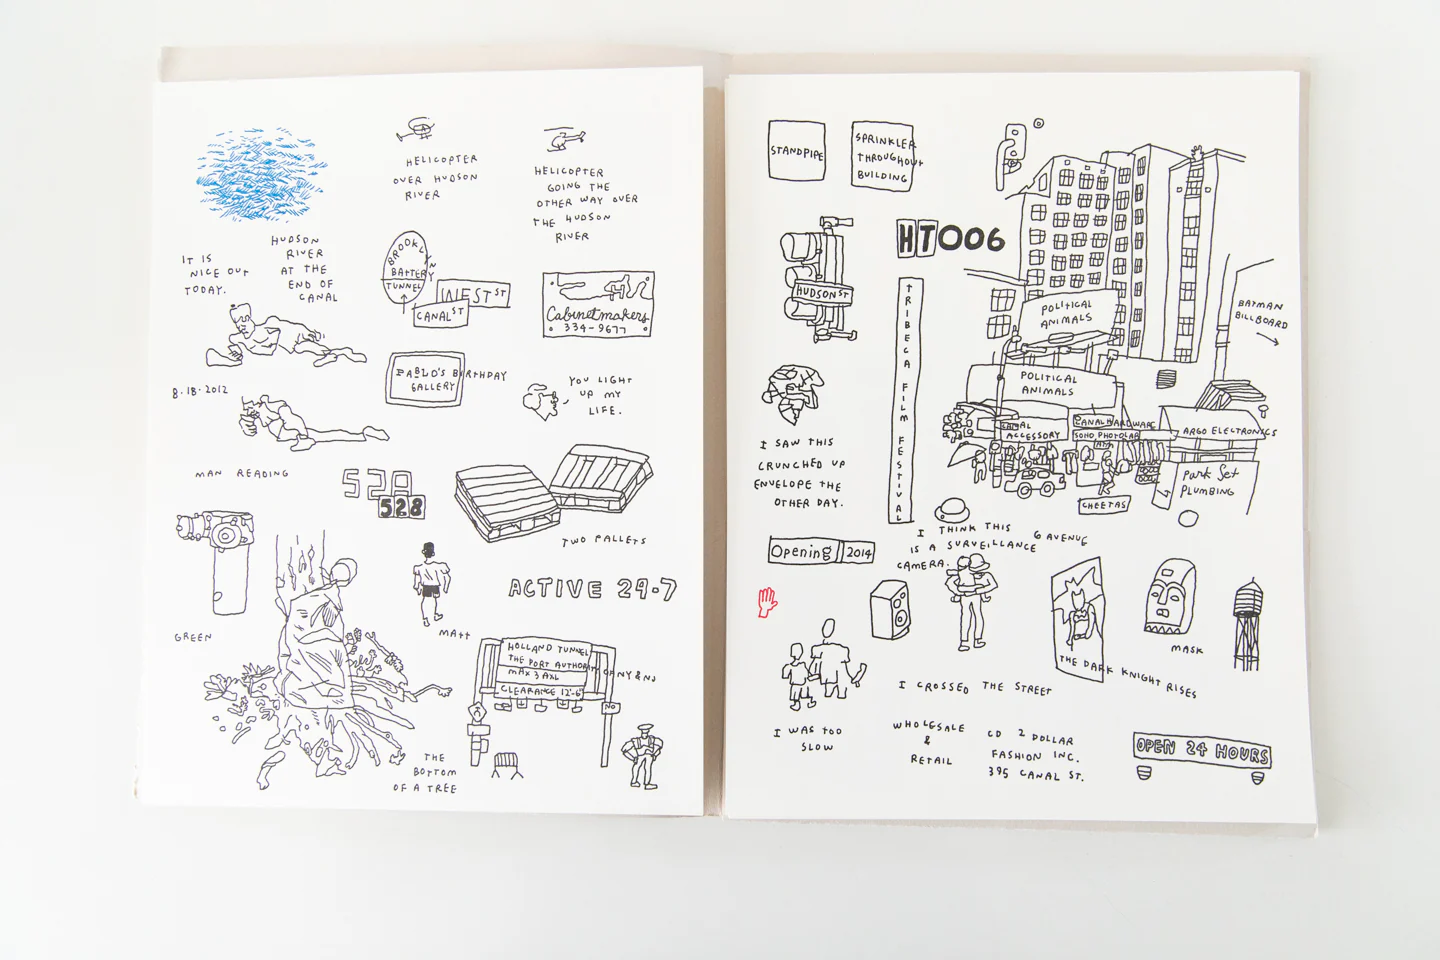 HELICOPTER
OVER HUDSON
RIVER
HELICOPTER
GOING THE
OTHER WAY OVER
THE HUDSON
RIVER
IT IS
NICE OUT
TODAY.
HUDSON
RIVER
AT THE
END OF
CANAL
BROOKLYN
BATTERY
TUNNEL
WEST ST
CANAL ST
Cabinetmakers
334-9677
8.18.2012
PABLO'S BIRTHDAY
GALLERY
YOU LIGHT
UP MY
LIFE.
MAN READING
528
528
TWO PALLETS
ACTIVE 29.7
GREEN
MATT
HOLLAND TUNNEL
THE PORT AUTHORITY OF NY & NJ
MAX 3 AXL
CLEARANCE 12'-6"
NO
THE
BOTTOM
OF A TREE
STANDPIPE
SPRINKLER
THROUGHOUT
BUILDING
HT006
HUDSON ST
TRIBECA FILM FESTIVAL
POLITICAL
ANIMALS
BATMAN
BILLBOARD
POLITICAL
ANIMALS
CANAL
ACCESSORY
CANAL HARDWARE
SOHO PHOTOLAB
ATM
ARGO ELECTRONICS
Park Set
PLUMBING
CHEETAS
I SAW THIS
CRUNCHED UP
ENVELOPE THE
OTHER DAY.
I THINK THIS
IS A SURVEILLANCE
CAMERA.
6 AVENUE
Opening 2014
MASK
THE DARK KNIGHT RISES
I CROSSED THE STREET
I WAS TOO
SLOW
WHOLESALE
&
RETAIL
CD 2 DOLLAR
FASHION INC.
395 CANAL ST.
OPEN 24 HOURS